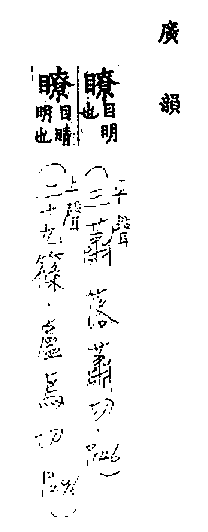 廣韻
瞭目明也(平聲三蕭.落蕭切.P146)
瞭目睛明也(上聲二十九篠.盧鳥切.P